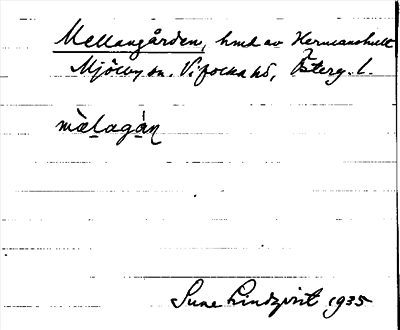 Mellangården, hmd av Hermanshult
Mjölby sn. Vifolka hd, Österg. l.
mælagàn
Sune Lindqvist 1935